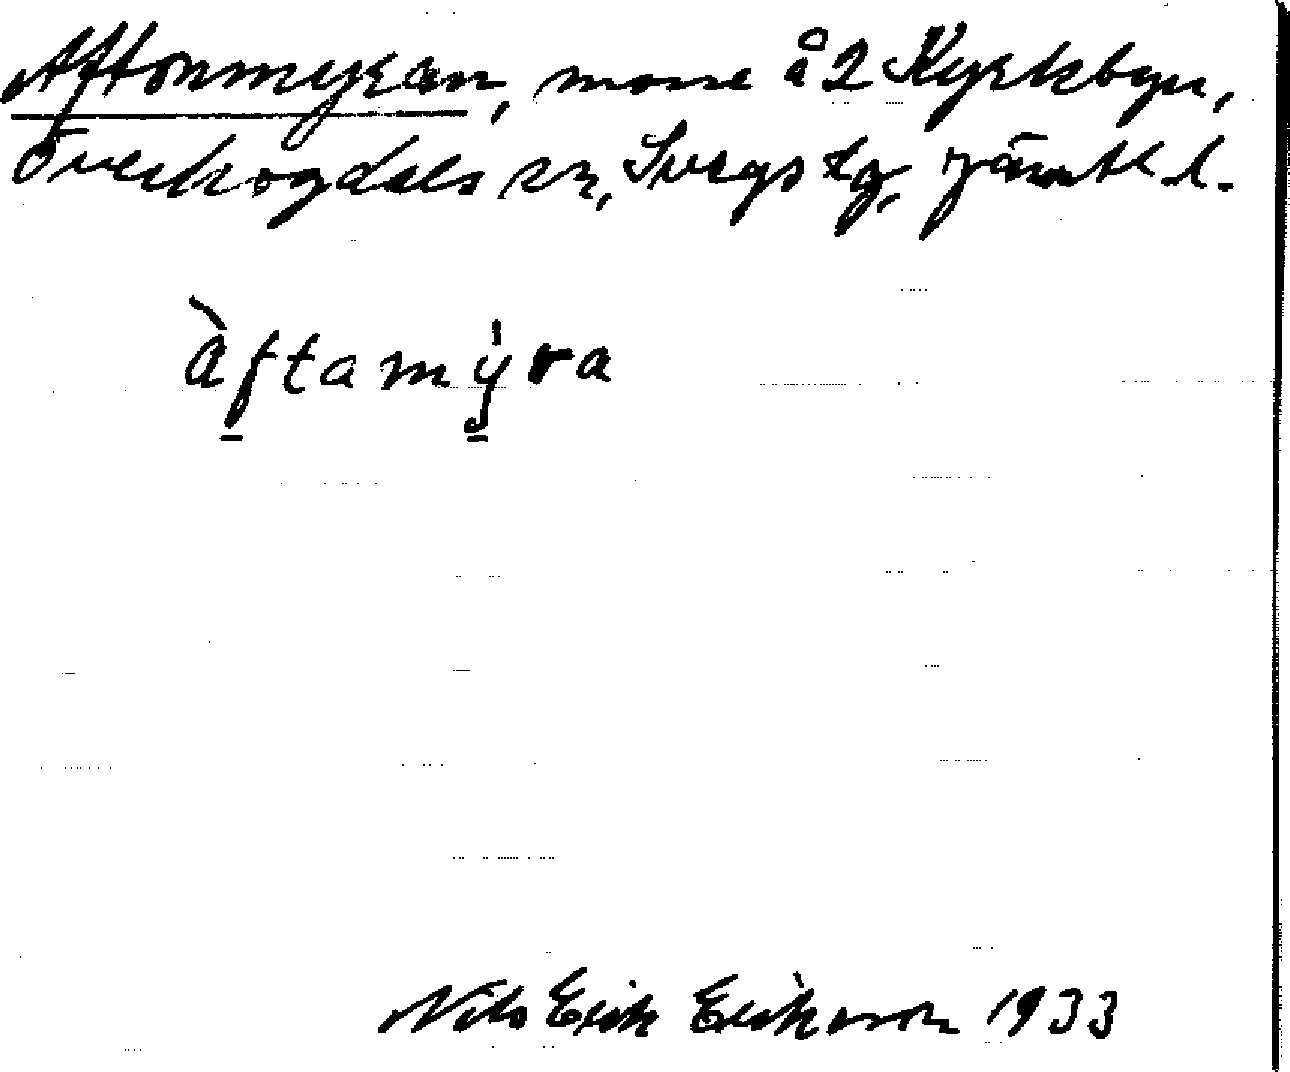 Aftonmyran, mosse å 2 Kyrkbyn,
Överhogdals sn, Svegs tg, Jämtl. l.
àftamýra
Nils Erik Eriksson 1933